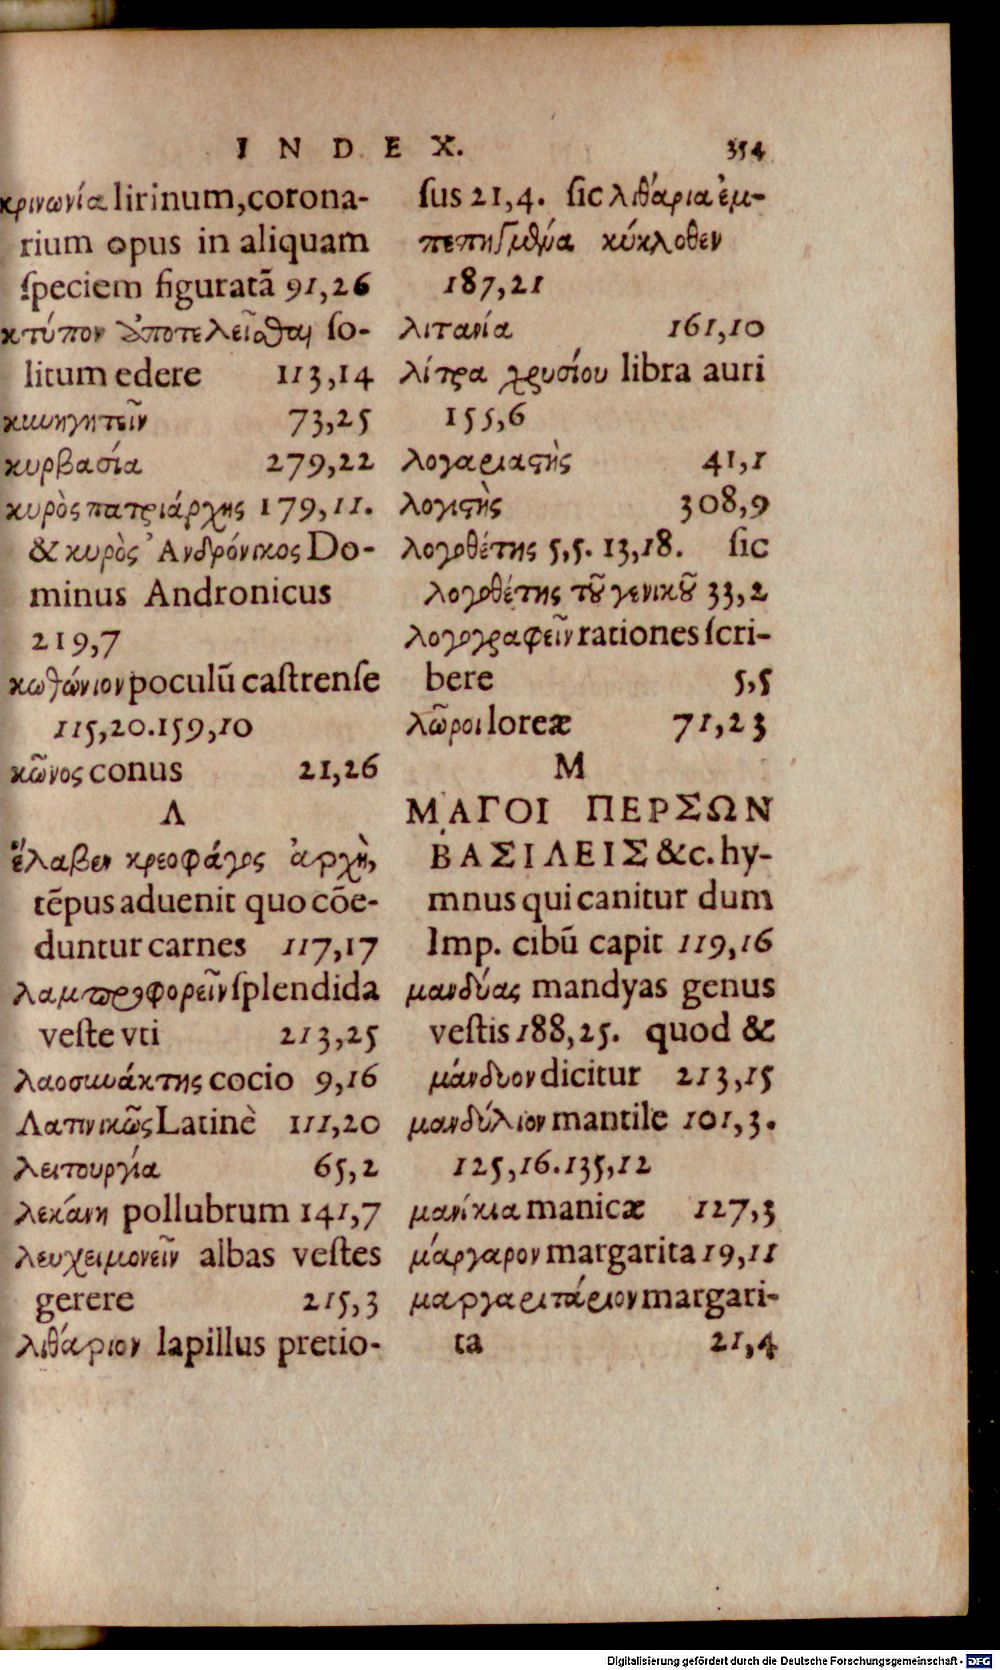 INDEX. 354
κρινωνία lirinum, corona-
rium opus in aliquam
ſpeciem figuratã 91,26
κτύπον ἀποτελεῖσθαι ſo-
litum edere 113,14
κυνηγητεῖν 73,25
κυρβασία 279,22
κυρὸς πατριάρχης 179,11.
& κυρὸς Ἀνδρόνικος Do-
minus Andronicus
219,7
κωθώνιον poculũ caſtrenſe
115,20.159,10
κῶνος conus 21,26
Λ
ἔλαβεν κρεοφάγος ἀρχὴ,
tẽpus aduenit quo cõe-
duntur carnes 117,17
λαμπροφορεῖν ſplendida
veſte vti 213,25
λαοσυνάκτης cocio 9,16
Λατινικῶς Latinè 111,20
λειτουργία 65,2
λεκάνη pollubrum 141,7
λευχειμονεῖν albas veſtes
gerere 215,3
λιθάριον lapillus pretio-
ſus 21,4. ſic λιθάρια ἐμ-
πεπησμένα κύκλοθεν
187,21
λιτανία 161,10
λίτρα χρυσίου libra auri
155,6
λογαριαστὴς 41,1
λογιστὴς 308,9
λογοθέτης 5,5. 13,18. ſic
λογοθέτης τοῦ γενικοῦ 33,2
λογογραφεῖν rationes ſcri-
bere 5,5
λῶροι loreæ 71,23
M
ΜΑΓΟΙ ΠΕΡΣΩΝ
ΒΑΣΙΛΕΙΣ &c. hy-
mnus qui canitur dum
Imp. cibũ capit 119,16
μανδύας mandyas genus
veſtis 188,25. quod &
μάνδυον dicitur 213,15
μανδύλιον mantile 101,3.
125,16.135,12
μανίκια manicæ 127,3
μάργαρον margarita 19,11
μαργαριτάριον margari-
ta 21,4
Digitalisierung gefördert durch die Deutsche Forschungsgemeinschaft - DFG